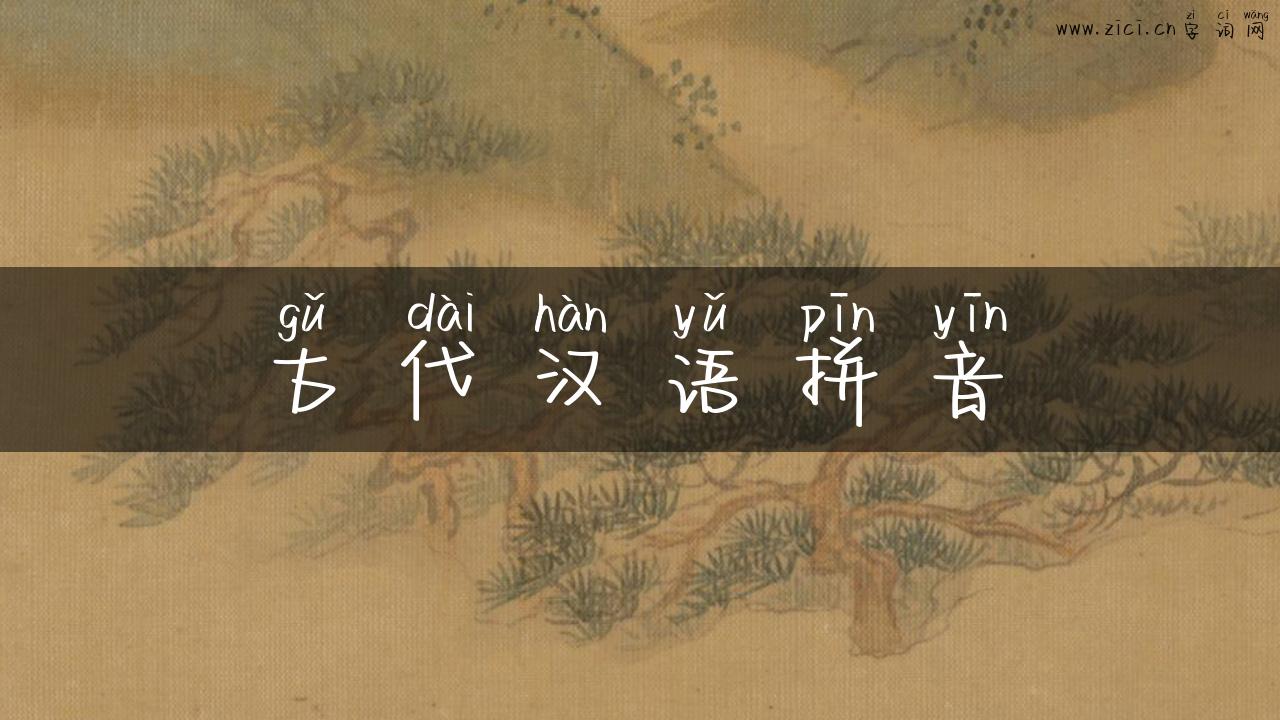 zì cí wǎng
www.zīcī.cn 字 词 网
gǔ dài hàn yǔ pīn yīn
古 代 汉 语 拼 音